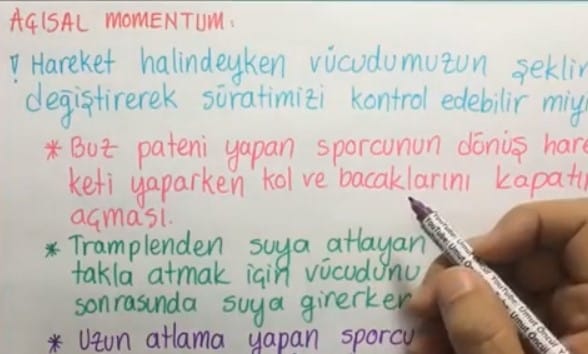 AÇISAL MOMENTUM:
! Hareket halindeyken vücudumuzun şeklin
değiştirerek süratimizi kontrol edebilir miy
* Buz pateni yapan sporcunun dönüş hare
keti yaparken kol ve bacaklarını kapatı
açması.
* Tramplenden suya atlayan
takla atmak için vücudunu
sonrasında suya girerken
* Uzun atlama yapan sporcu
YouTube: Umut Öncül